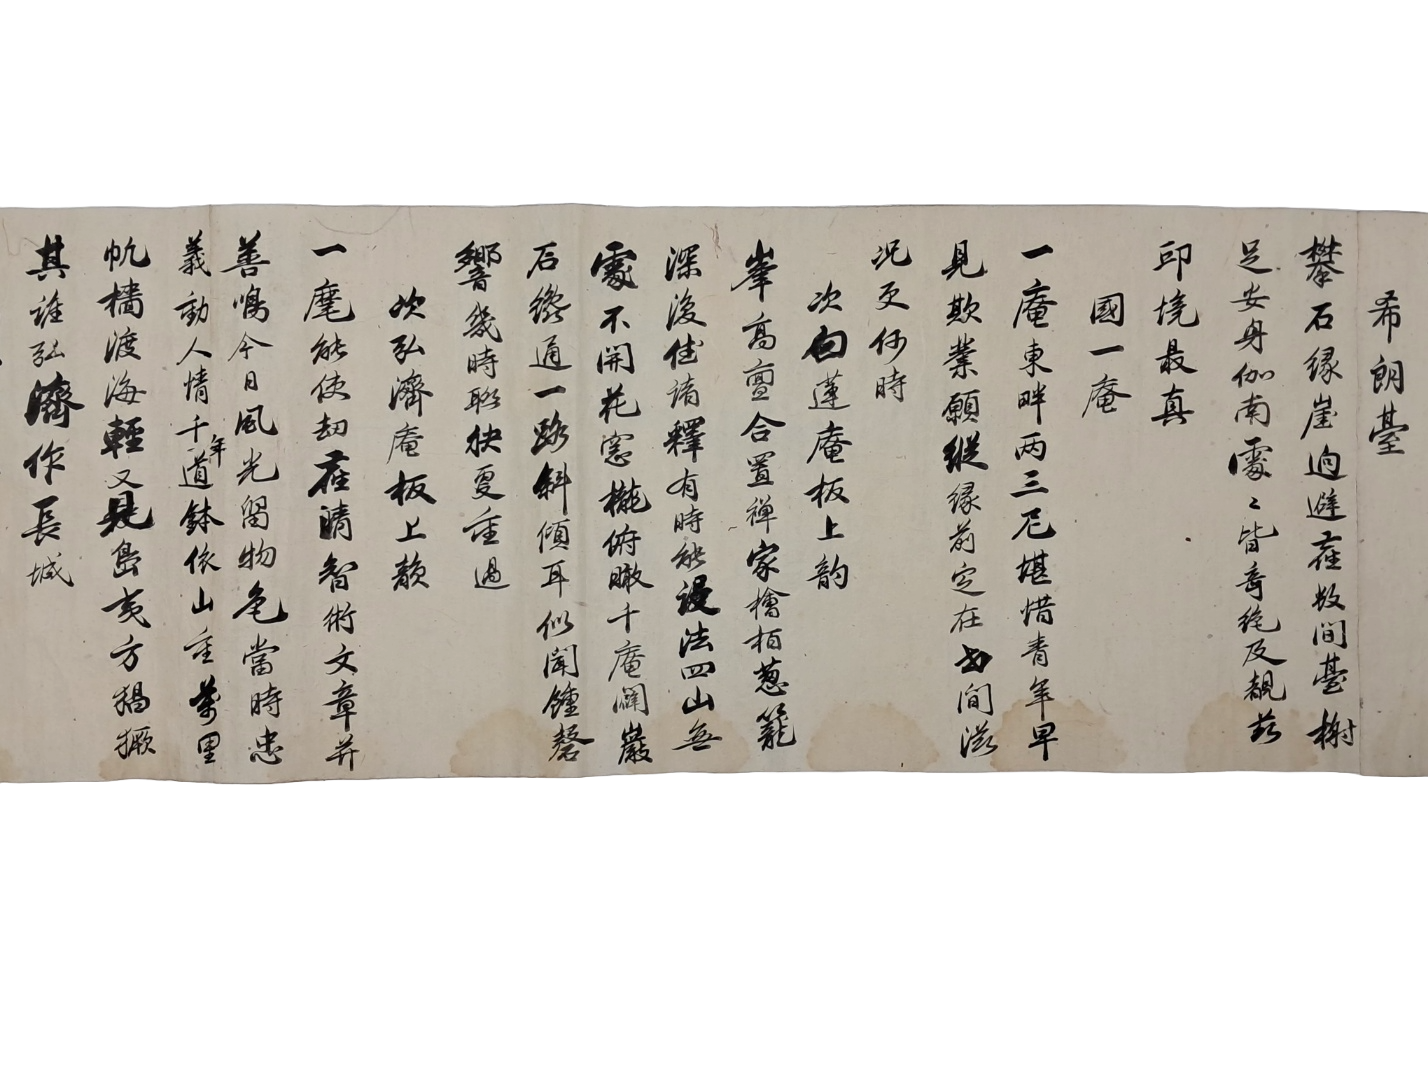 希朗臺
攀石緣崖逈避在数间臺榭
足安身伽南處〻皆奇绝及覩茲
邱境最真
國一庵
一庵東畔两三尼堪惜青年早
見欺業願縱緣前定在世间滋
况更何時
次白蓮庵板上韵
峯高亶合置禅家檜栢葱籠
深復佳諸釋有時能设法四山無
處不開花窓櫳俯瞰千庵濶巖
石纔通一路斜傾耳似闻鍾磬
響幾時聯抉更重過
次弘濟庵板上韻
一麾能使劫在清智術文章并
善鳴今日風光留物色當時忠
義動人情千年道鉢依山重萬里
帆檣渡海輕又見島夷方猖獗
其誰弘濟作長城